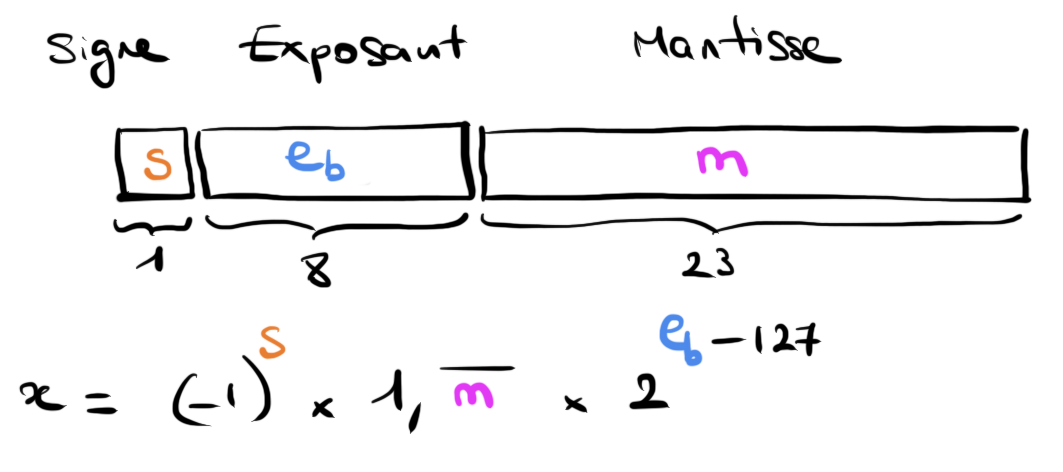 Signe Exposant Mantisse
s e_b m
1 8 23
x = (-1)^s × 1, m̅ × 2^(e_b - 127)